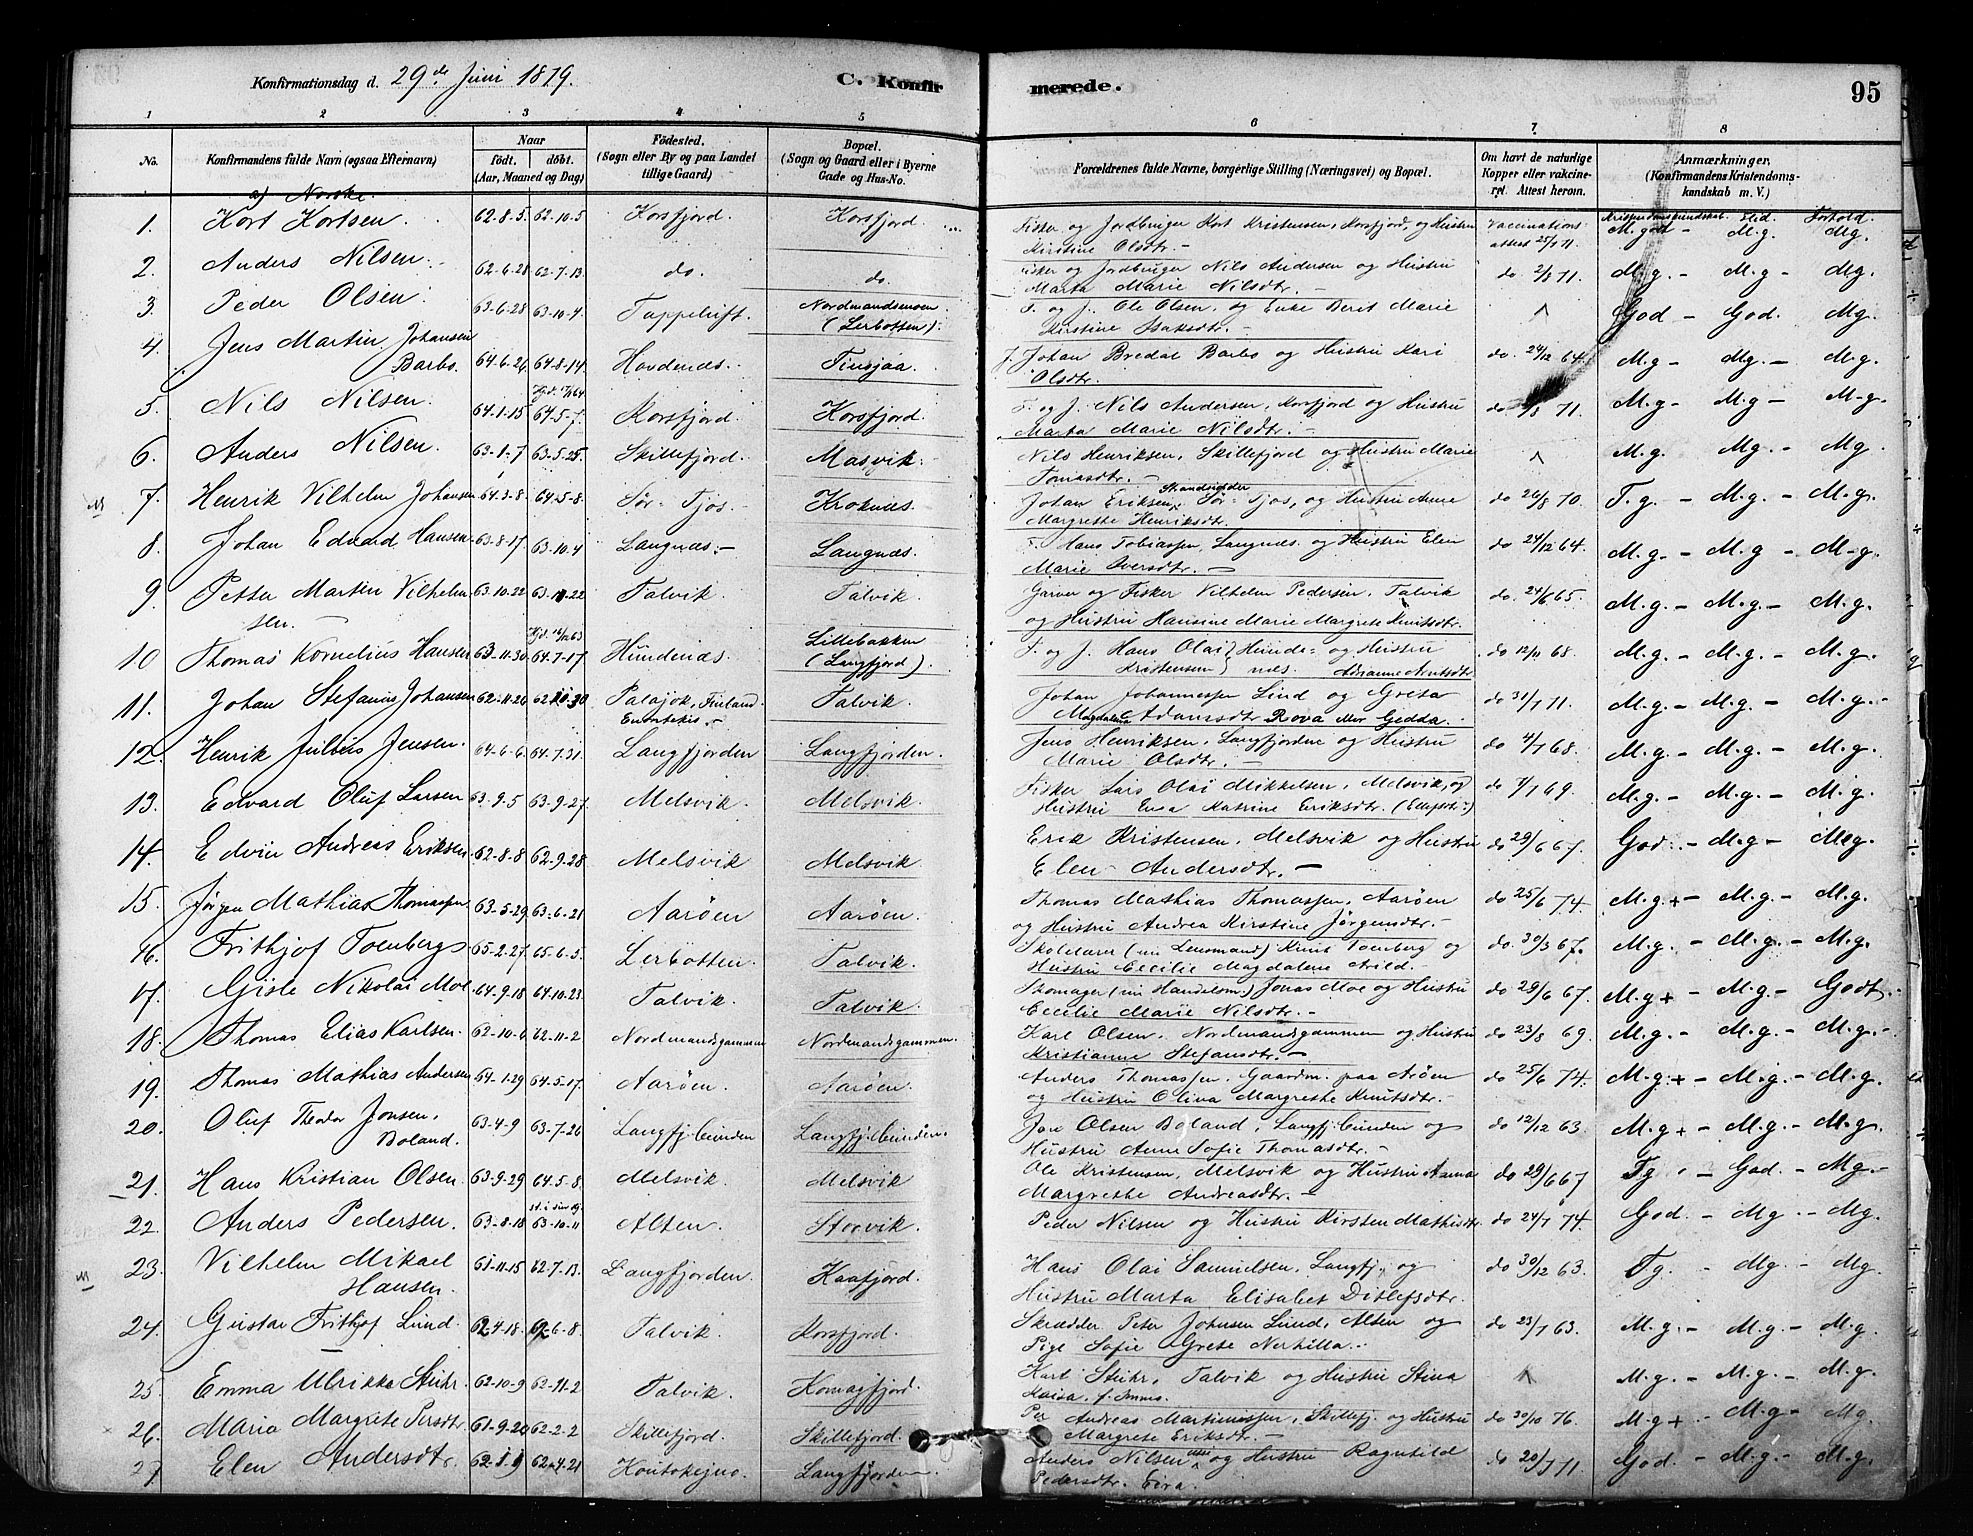 Konfirmationsdag d. 29de Juni 1879.
C. Konfirmerede.
95
1 2 3 4 5 6 7 8
No. Konfirmandens fulde Navn (ogsaa Efternavn) Naar födt. döbt. (Aar, Maaned og Dag) Födested. (Sogn eller By og paa Landet tillige Gaard) Bopæl. (Sogn og Gaard eller i Byerne Gade og Hus-No. Forældrenes fulde Navne, borgerlige Stilling (Næringsvei) og Bopæl. Om havt de naturlige Kopper eller vakcineret. Attest herom. Anmærkninger. (Konfirmandens Kristendomskundskab m. V.)
a) Norske.
Kristendomskundskab. Flid. Forhold.
1. Kort Kortsen 62.8.5 62.10.5 Korsfjord. Korsfjord. Fisker og Jordbruger Kort Kristensen, Korsfjord, og Hustru Vaccinations M. godt - M.g. Mg.
Kirstine Olsdtr. - attest 25/7 71.
2. Anders Nilsen 62-6-28 62-7-13 do. do. Fisker og Jordbruger Nils Andersen og Hustru do 2/8 71. M.g. - M.g - Mg
Marta Marie Nilsdtr. -
3. Peder Olsen 63-6-28 63-10-4 Tappeluft. Nordmandsmoen F. og J. Ole Olsen, og Enke Berit Marie God - God. Mg.
(Lerbotten). Kirstine Isaksdtr. -
4. Jens Martin Johansen 64-6-26 64-8-14 Hovdenæs. Tinsjaa. J. Johan Bredal Barbo og Hustru Kari do. 24/12 64. M.g - Mg. - M.g.
Barbo. Olsdtr.
Hjd. 17/1 64
5. Nils Nilsen 64-1-15 64-5-7 Korsfjord Korsfjord. F. og J. Nils Andersen, Korsfjord og Hustru do 2/8 71. M.g - M.g - M-g.
Marta Marie Nilsdtr. -
6. Anders Nilsen. 63-1-7 63-5-25 Skillefjord. Masvik. Nils Henriksen, Skillefjord og Hustru Marie M.g. M.g - Mg.
Tomasdtr. -
7. Henrik Vilhelm Johansen 64-3-8 64-5-8 Sör-Tjos. Kroknæs. Johan Eriksen, Strandsidder Sör-Tjos, og Hustru Anne do 26/8 70. T.g. - M.g. - M.g.
Margrethe Henriksdtr.
8. Johan Edvard Hansen 63-8-17 63.10.4 Langnæs. - Langnæs. F. Hans Tobiassen, Langnæs og Hustru Elen do 24/12 64. M.g. - M.g - M-g.
Marie Iversdtr. -
9. Petter Martin Vilhelm 63.10.22 63-11-22 Talvik Talvik. Garver og Fisker Vilhelm Pedersen, Talvik do. 24/6 65. M.g - M.g. - M.g.
sen. og Hustru Hansine Marie Margrete Knutsdtr.
Hjd. 12/12 63
10 Thomas Kornelius Hansen 63-11-30 64-7-17 Hundenæs. Lillebakken F. og J. Hans Olai Hunde- og Hustru do 12/11 68. M.g - M.g. - M.g.
(Langfjord). Kristensen næs. Adrianne Arntsdtr
11. Johan Stefanus Johansen 62-11-26 62-11-30 Palajok, Finland. Talvik. Johan Johannessen Lind og Greta do 31/7 71. M.g - M.g. - M.g. -
Enontekis. - Magdalena Adamsdtr Rova eller Gedda.
12. Henrik Julius Jensen. 64-6-6 64.7.31 Langfjorden Langfjorden. Jens Henriksen, Langfjorden og Hustru do 4/7 68. M.g - M.g. - M.g.
Marie Olsdtr. -
13. Edvard Oluf Larsen 63-9-5 63-9-27. Melsvik. Melsvik. Fisker Lars Olai Mikkelsen, Melsvik, og do 7/7 69. M.g. - M.g. - M.g.
Hustru Eva Katrine Eriksdtr.
14. Edvin Andreas Eriksen 62-8-8 62-9-28 Melsvik Melsvik. Erik Kristensen, Melsvik og Hustru do 29/6 67. God. - M.g - M.g.
Elen Andersdtr. -
15. Jörgen Mathias Thomassen 63-5-29 63-6-21 Aaröen Aaröen. Thomas Mathias Thomassen, Aaröen do 25/6 74. M.g.+ - M.g. - M.g.
og Hustru Andrea Kirstine Jörgensdtr. -
16. Frithjof Toenbergs 65-2-27 65-6-5 Lerbotten. Talvik. Skolelærer (nu Lensmand) Knut Toenberg og do. 30/3 67. M.g. - M.g. - M.g.
Hustru Cecilie Magdalene Arild.
17. Gisle Nikolai Moe 64-9-18 64-10-23 Talvik. Talvik. Thomager (nu Handelsm.) Jonas Moe og Hustru do 29/6 67. M.g + - M.g. - Godt.
Cecilie Marie Nilsdtr.
18. Thomas Elias Karlsen. 62-10-6 62-11-2 Nordmandsgammen Nordmandsgammen. Karl Olsen, Nordmandsgammen og Hustru do 23/8 69. M.g. - M.g. - M.g. -
Kristianne Stefansdtr. -
19. Thomas Mathias Andersen 64-1-29 64-5-17. Aaröen. Aaröen. Anders Thomassen, Gaardm. paa Aröen do 25/6 74. M.g + - M.g. - M.g.
og Hustru Oliva Margrethe Knutsdtr. -
20. Oluf Theodor Jonsen, 63-4-9 63-7-26 Langfj.bunden Langfj.bunden. Jon Olsen Boland, Langfj.bunden og do 12/12 63. M.g + - M.g. - M.g.
Boland. Hustru Anne Sofie Thomasdtr. -
21. Hans Kristian Olsen. 63-9-29 64.5.8 Melsvik. Melsvik Ole Kristensen, Melsvik og Hustru Anna do 29/6 67 Tg. - God. - Mg. -
Margrethe Andreasdtr. -
22. Anders Pedersen. 63-8-18 63-10-11 Alten. Storvik. Peder Nilsen og Hustru Kirsten Mathisdtr. do 24/7 74. God. - Mg. - Mg.
23. Vilhelm Mikael 61-11-15 62-7-13. Langfjorden. Kaafjord. Hans Olai Samuelsen, Langfj. og do 30/12 63. Tg. - Mg - Mg.
Hansen. Hustru Marta Elisabet Ditlefsdtr.
24. Gustav Frithjof Lund. 62.4-18. 62-6-8. Talvik. Korsfjord. Skrædder Peter Johnsen Lund, Alten og do 23/7 63. M.g. - M.g - M.g.
Pige Sofie Grete Nerhilta. -
25. Emma Ulrikka Stuhr. 62-10-9 62-11-2 Talvik. Komagfjord. Karl Stuhr, Talvik og Hustru Stina M.g. - M.g. - M.g.
Kaisa
26. Maria Margrete Persdtr 61-9-20 62-2-2 Skillefjord. Skillefjord. Per Andreas Martinussen, Skillefj. og Hustru do 30/10 76. M.g + - M.g - Mg
Margrete Eriksdtr. -
27 Elen Andersdtr. 62-1-9 62-4-21 Koutokejno. Langfjorden Anders Nilsen og Hustru Ragnhild do 20/7 71. God. - M.g. - M.g.
Pedersdtr. Eira.